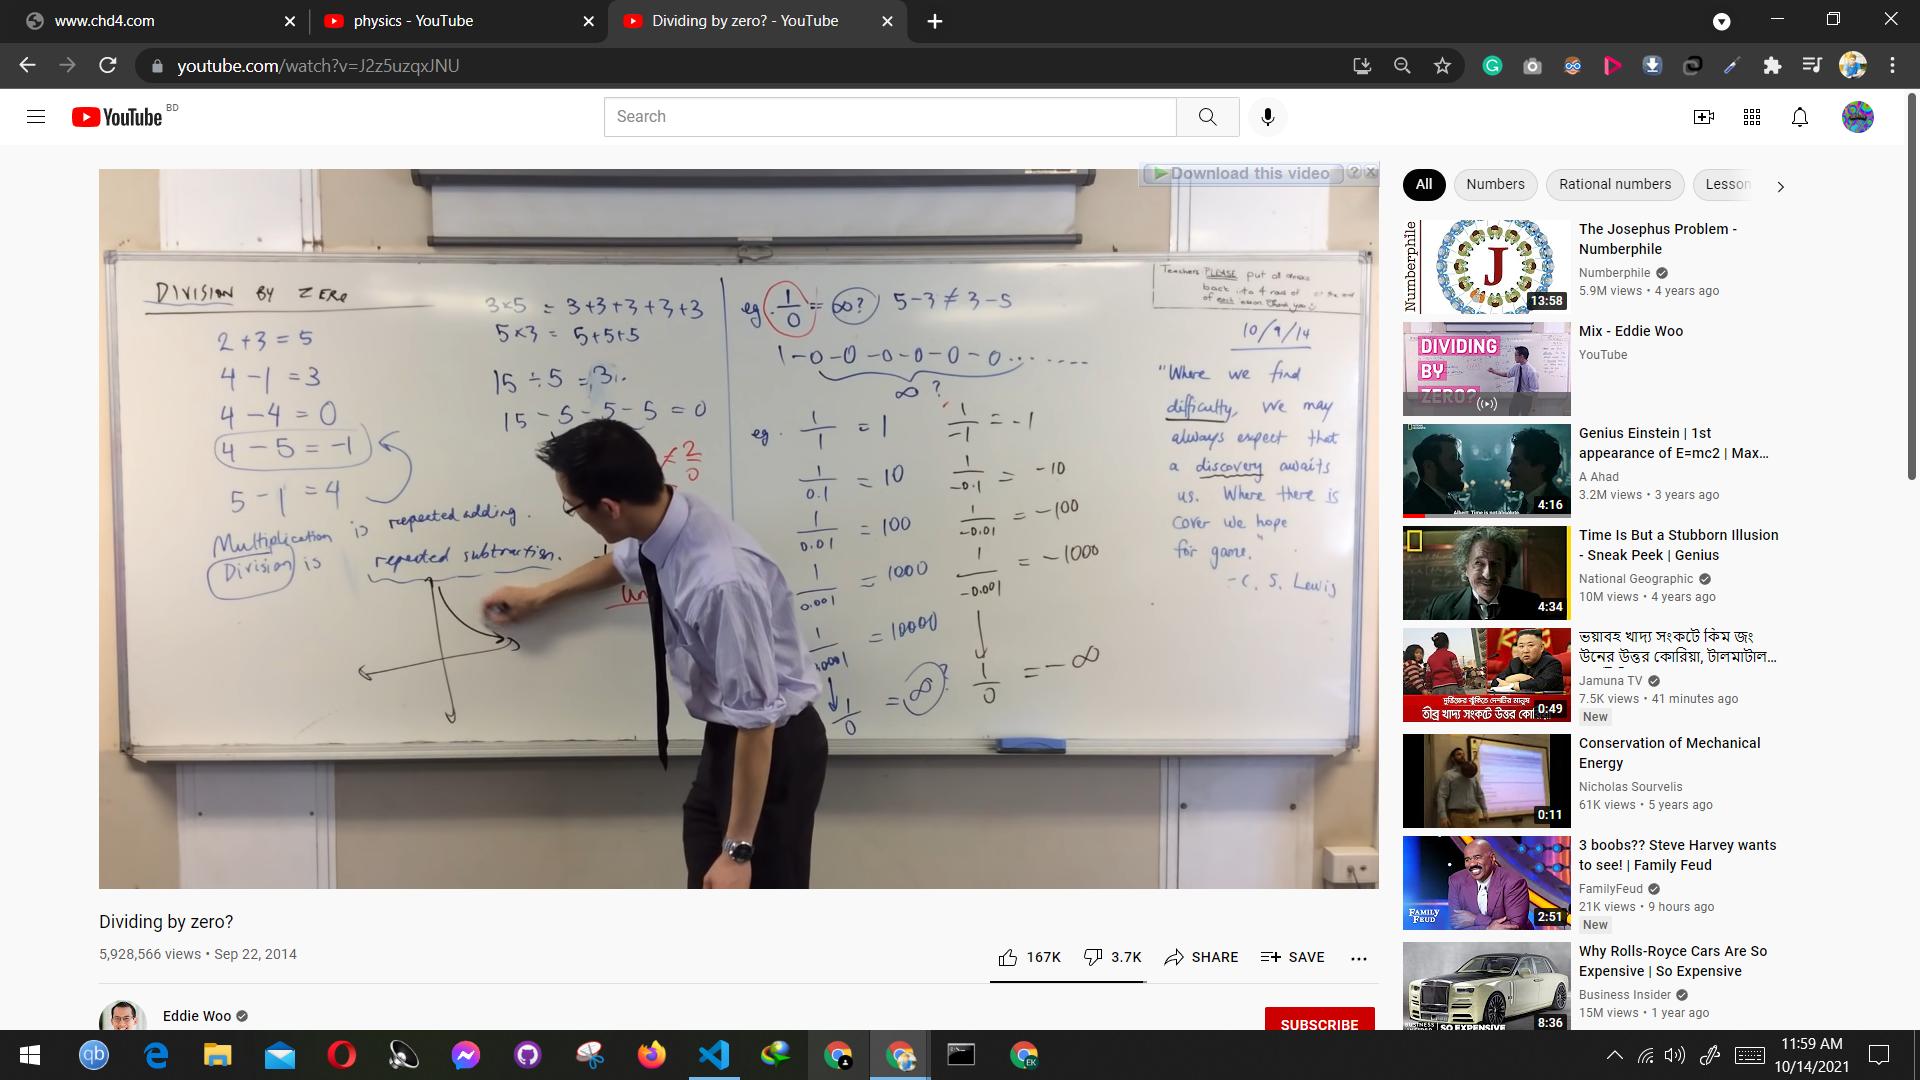 www.chd4.com
physics - YouTube
Dividing by zero? - YouTube
youtube.com/watch?v=J2z5uzqxJNU
YouTube BD
Search
Download this video ? X
DIVISION BY ZERO
2 + 3 = 5
4 - 1 = 3
4 - 4 = 0
4 - 5 = -1
5 - 1 = 4
Multiplication is repeated adding.
Division is repeated subtraction.
3×5 = 3+3+3+3+3
5×3 = 5+5+5
15 ÷ 5 = 3.
15 - 5 - 5 - 5 = 0
≠ 2/0
eg. 1/0 = ∞? 5-3 ≠ 3-5
1-0-0-0-0-0-0... ....
∞?
eg. 1/1 = 1
1/0.1 = 10
1/0.01 = 100
1/0.001 = 1000
= 10000
1/0 = ∞?
1/-1 = -1
1/-0.1 = -10
1/-0.01 = -100
1/-0.001 = -1000
1/0 = -∞
Teachers PLEASE put all
back into 4 rows of
of each lesson. Thank you
10/9/14
"Where we find
difficulty, we may
always expect that
a discovery awaits
us. Where there is
cover we hope
for game."
- C. S. Lewis
Dividing by zero?
5,928,566 views • Sep 22, 2014
167K 3.7K SHARE SAVE
Eddie Woo
SUBSCRIBE
All Numbers Rational numbers Lesson
Numberphile
J
13:58
The Josephus Problem -
Numberphile
Numberphile
5.9M views • 4 years ago
DIVIDING
BY
ZERO?
Mix - Eddie Woo
YouTube
4:16
Genius Einstein | 1st
appearance of E=mc2 | Max...
A Ahad
3.2M views • 3 years ago
4:34
Time Is But a Stubborn Illusion
- Sneak Peek | Genius
National Geographic
10M views • 4 years ago
0:49
ভয়াবহ খাদ্য সংকটে কিম জং
উনের উত্তর কোরিয়া, টালমাটাল...
Jamuna TV
7.5K views • 41 minutes ago
New
দুর্ভিক্ষের ঝুঁকিতে দেশটির মানুষ
তীব্র খাদ্য সংকটে উত্তর
0:11
Conservation of Mechanical
Energy
Nicholas Sourvelis
61K views • 5 years ago
FAMILY
FEUD
2:51
3 boobs?? Steve Harvey wants
to see! | Family Feud
FamilyFeud
21K views • 9 hours ago
New
SO EXPENSIVE
8:36
Why Rolls-Royce Cars Are So
Expensive | So Expensive
Business Insider
15M views • 1 year ago
qb
EK
11:59 AM
10/14/2021